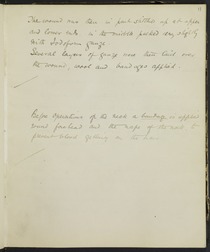 The wound was then in part stitched up at upper
and lower ends in the middle packed very slightly
with Iodoform gauze
Several layers of gauze were then laid over
the wound, wool and bandages applied.
Before operations of the neck a bandage is applied
round forehead and the nape of the neck to
prevent blood getting in the